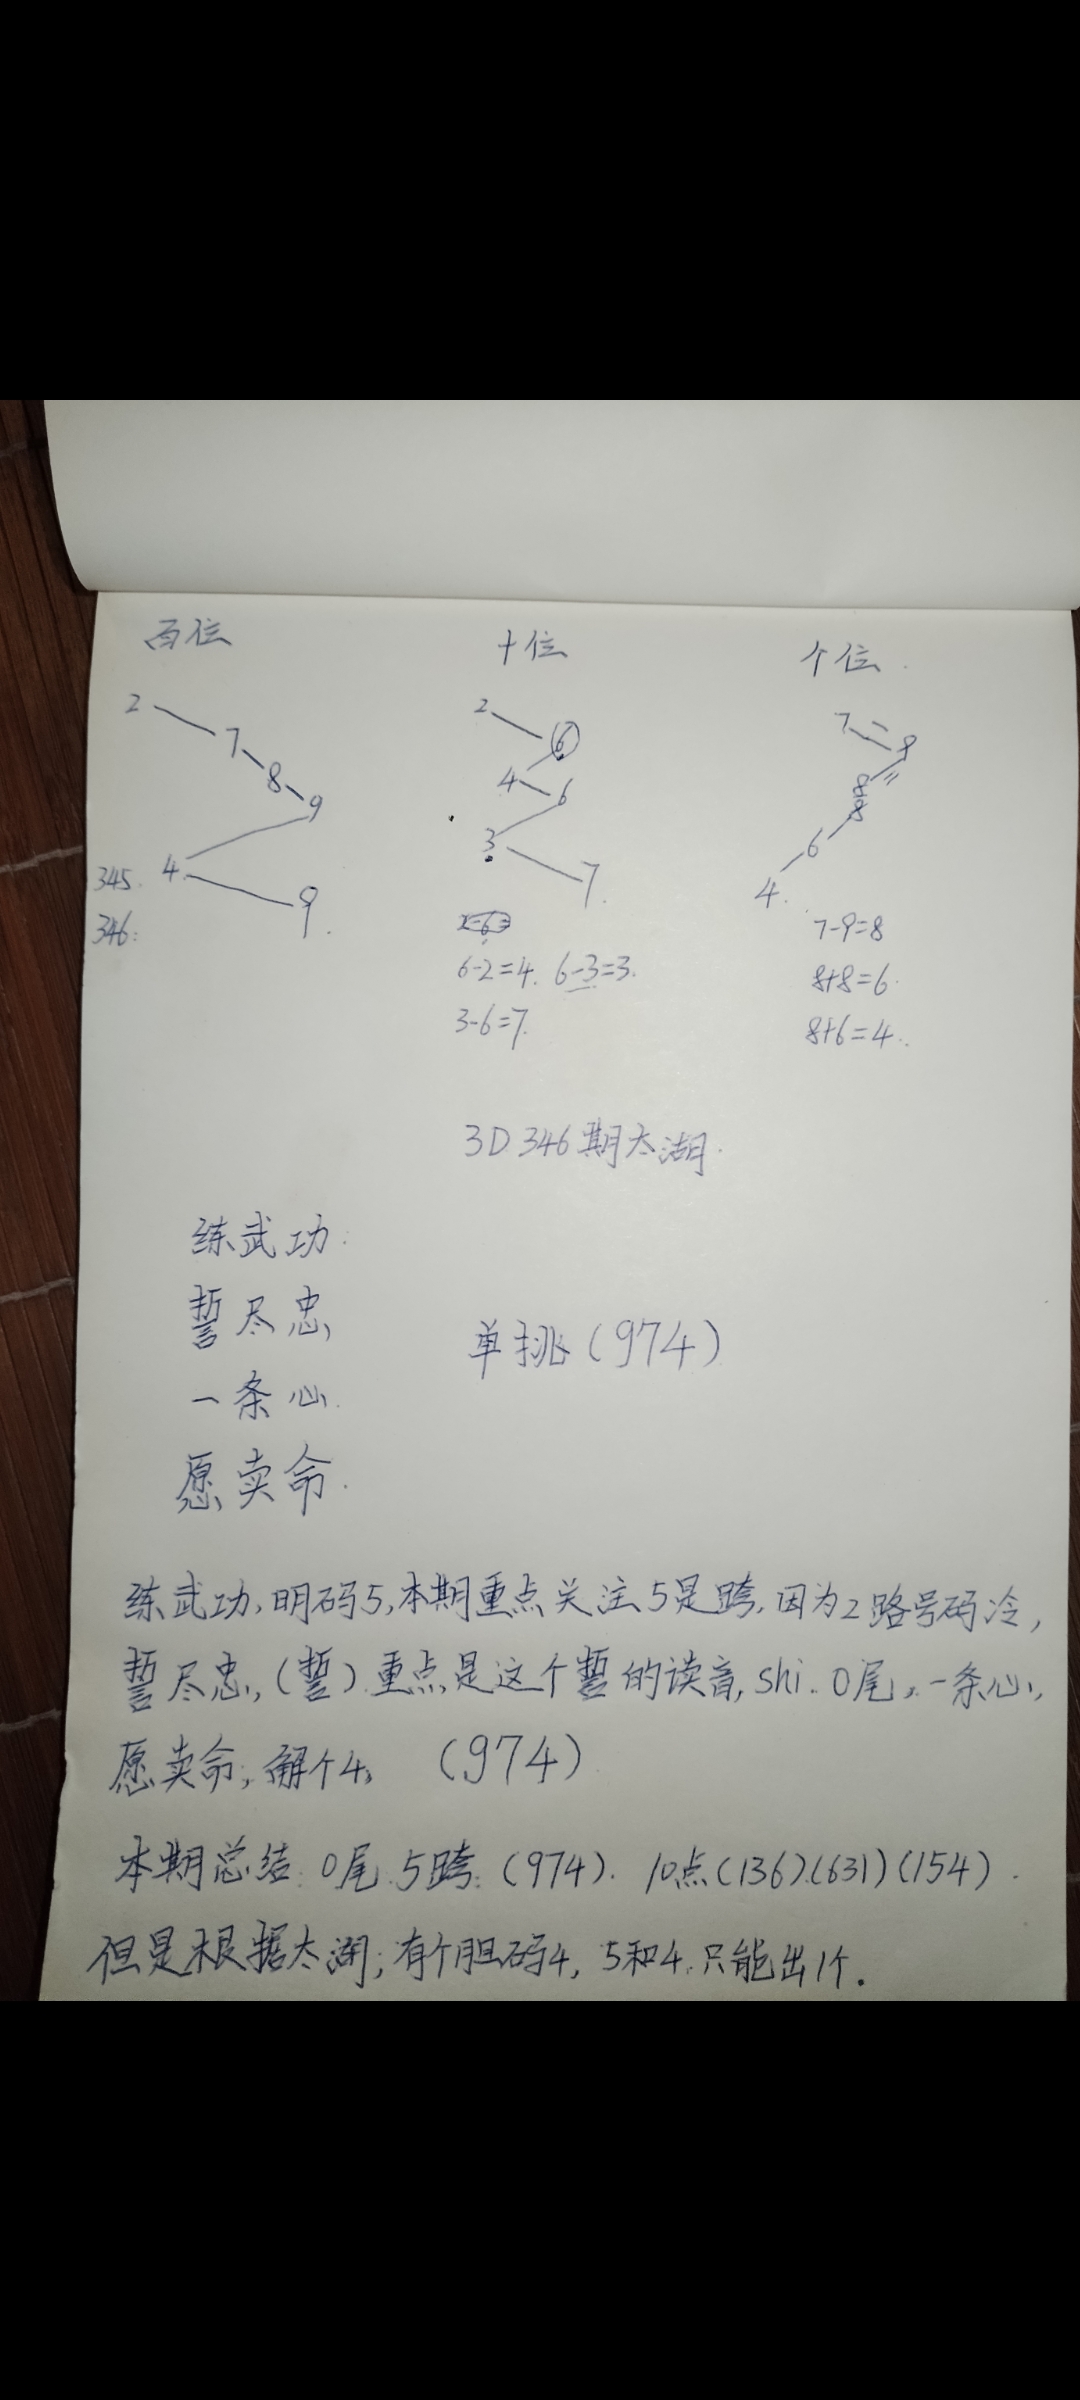 百位 十位 个位
2 2 7 9
7 6
8 4 6 8+8
9 3 6
345. 4 7 4.
346: 9
6-2=4. 6-3=3. 7-9=8
3-6=7. 8+8=6.
8+6=4.
3D 346期太湖.
练武功:
誓尽忠,
单挑(974)
一条心.
愿卖命.
练武功,明码5,本期重点关注5是跨,因为2路号码冷,
誓尽忠,(誓)重点是这个誓的读音,shi.0尾,一条心,
愿卖命,解个4, (974)
本期总结:0尾.5跨:(974). 10点(136).(631)(154).
但是根据太湖,有个胆码4,5和4.只能出1个.